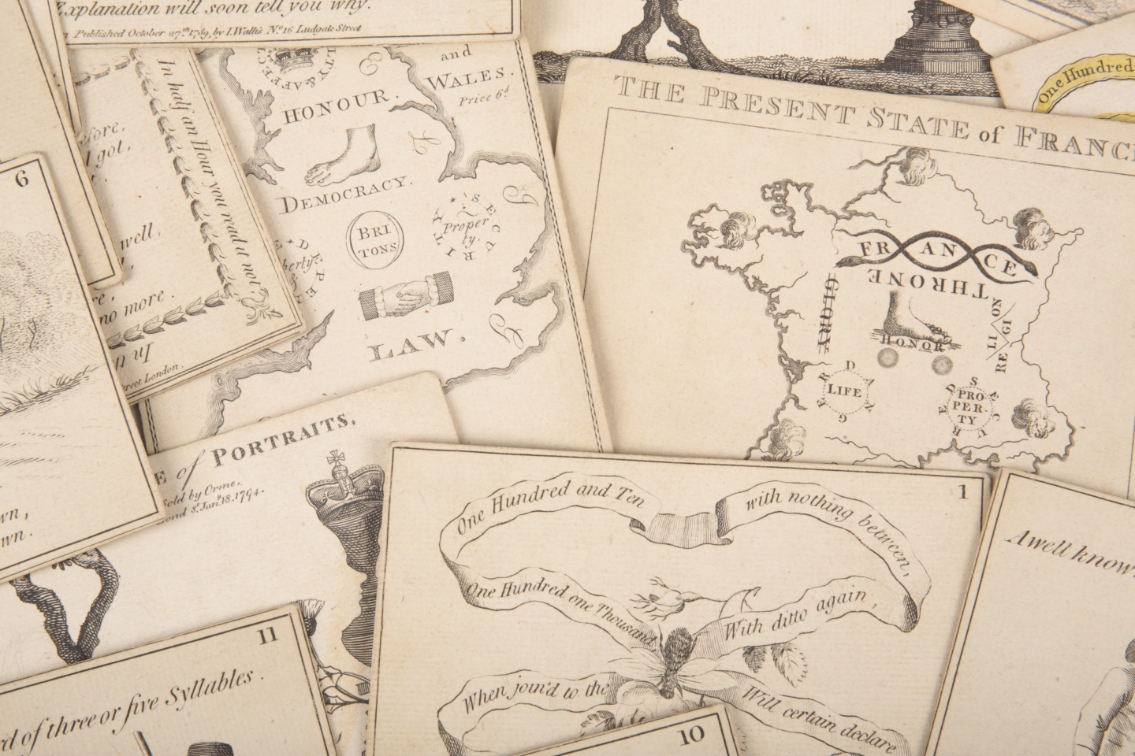 Explanation will soon tell you why.
Published October 27th 1789, by I. Wallis No. 16 Ludgate Street
and
WALES.
Price 6d
HONOUR.
DEMOCRACY.
BRI
TONS
Proper
ty.
SECURITY
LAW.
In half an Hour you read it not
got,
well,
no more.
Street London.
6
THE PRESENT STATE of FRANC
FRANCE
THRONE
GLORY
HONOR
RELIGION
LIFE
DANGER
PRO
PER-
TY
One Hundred
of PORTRAITS.
Sold by Orme,
18, 1794.
1
One Hundred and Ten
with nothing between,
One Hundred one Thousand
With ditto again,
When join'd to the
Will certain declare
A well know
11
of three or five Syllables.
10